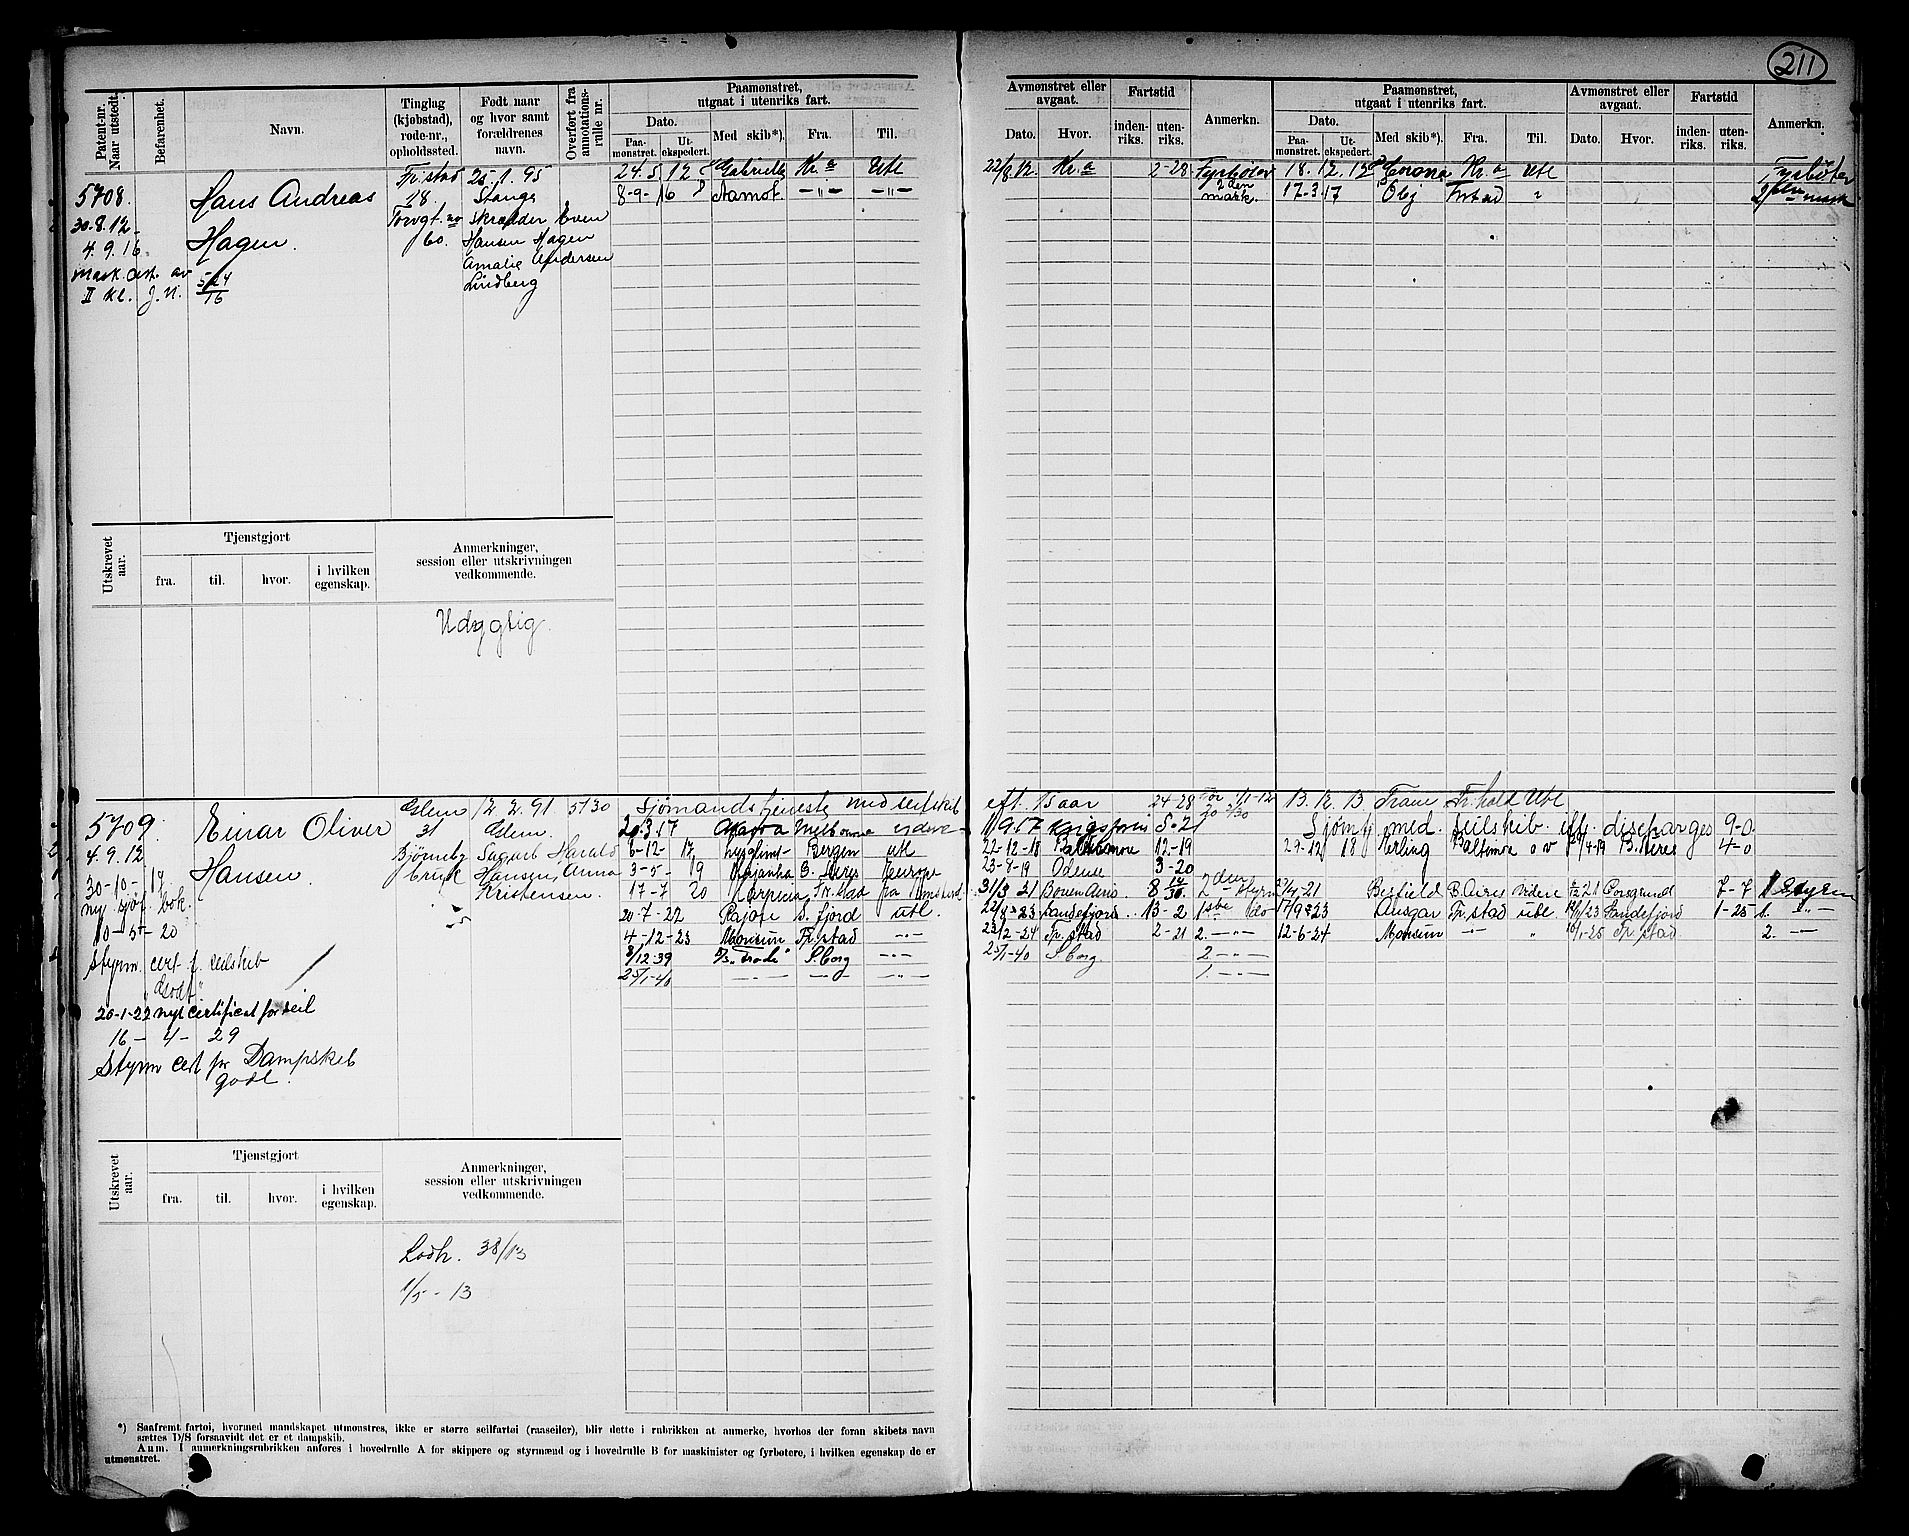 211
Patent-nr. Naar utstedt.
Befarenhet.
Navn.
Tinglag (kjøbstad), rode-nr., opholdssted.
Født naar og hvor samt forældrenes navn.
Overført fra annotations-rulle nr.
Paamønstret, utgaat i utenriks fart.
Dato.
Paa-mønstret.
Ut-ekspedert.
Med skib*).
Fra.
Til.
Avmønstret eller avgaat.
Dato.
Hvor.
Fartstid
inden-riks.
uten-riks.
Anmerkn.
Paamønstret, utgaat i utenriks fart.
Dato.
Paa-mønstret.
Ut-ekspedert.
Med skib*).
Fra.
Til.
Avmønstret eller avgaat.
Dato.
Hvor.
Fartstid
inden-riks.
uten-riks.
Anmerkn.
5708.
30.8.12
4.9.16
Mask. cert. av
II kl. J. N.
Hans Andreas
Hagen.
Fr.stad
28.
Torvgt. no
60.
25.1.95
Stange
Skrædder Even
Hansen Hagen
Amalie Andersen
Lindberg
24.5.12 Gabriella Kr.a Ute 22/8 12. Kr.a 2-28 Fyrbøter 18.12.12 Corona Kr.a Ute Fyrbøter
8-9-16 Aamot. —"— —"— 2den mask. 17-3 17 Obj Fr.stad " 2den mask
Utskrevet aar.
Tjenstgjort
fra.
til.
hvor.
i hvilken egenskap.
Anmerkninger, session eller utskrivningen vedkommende.
Udygtig.
5709.
4.9.12
30-10-14
ny sjøf. bok.
10-5-20
Styrm. cert. f. seilskib
"Godt".
20-1-22 nyt certificat for seil
16-4-29
Styrm cert for Dampskib
godt.
Einar Oliver
Hansen
Glem
31
Bjørneby
bruk
12.2.91
Glem.
Sagarb Harald
Hansen, Anna
Kristensen.
5130
Sjømandstjeneste med seilskib eft. 15 aar 24-28 13.12.13 Trane Fr.hald Ute
20.3.17 Melbourne videre 1/9 17 8-21 Sjømtj med. seilskib. iflt. discharges 9-0
6-12-17 Bergen utl 22-12-18 Baltimore 12-19 29-12 18 Erling Baltimore o v /4-19 B. Aires 4-0
3-5-19 B. Aires Europe 23-8-19 Odense 3-20
17-7 20 Fr.stad fra 31/3 21 8 14/30 2den Styrm 21 B. Aires videre 21 Porsgrund 7-7 1 Styrm
20-7-22 S. fjord utl. 23 Sandefjord 13-2 1ste do 17/9 23 Ansgar Fr.stad utl. 23 Sandefjord 1-25 1. —"—
4-12-23 Monsun Fr.stad —"— 23/2-24 Fr.stad 2-21 2. —"— 12-6-24 Monsun —"— " /1-25 Fr.stad 2. —"—
8/12-39 S.borg —"— 25/1-40 S.borg 2 —"—
25/1-40 —"— —"— —"— 1. —"—
Utskrevet aar.
Tjenstgjort
fra.
til.
hvor.
i hvilken egenskap.
Anmerkninger, session eller utskrivningen vedkommende.
Lodtr. 38/13
1/5-13
*) Saafremt fartøi, hvormed mandskapet utmønstres, ikke er større seilfartøi (raaseiler), blir dette i rubrikken at anmerke, hvorhos der foran skibets navn
sættes D/S forsaavidt det er et dampskib.
Anm. I anmerkningsrubrikken anføres i hovedrulle A for skippere og styrmænd og i hovedrulle B for maskinister og fyrbøtere, i hvilken egenskap de er
utmønstret.